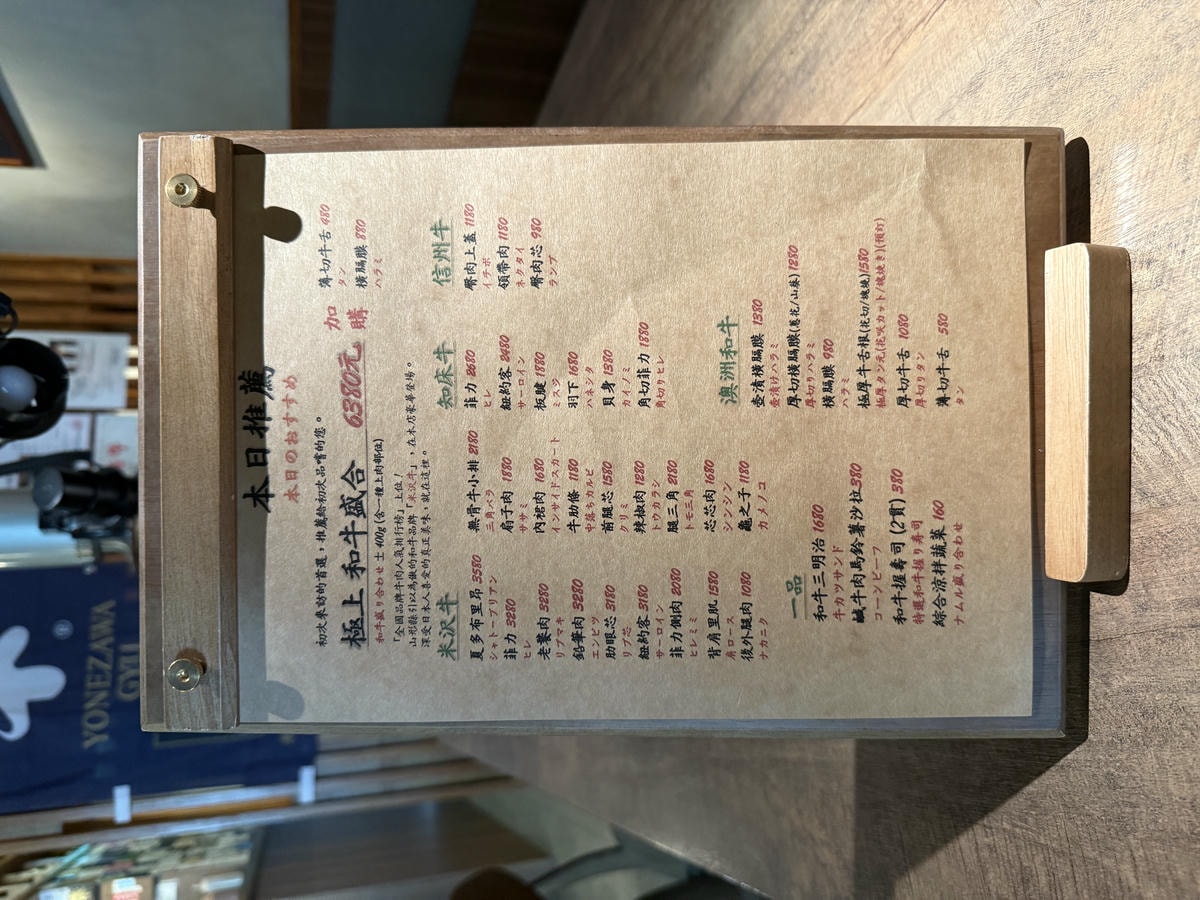 本日推薦
本日のおすすめ
初次來訪的首選，推薦給初次品嚐的您。
極上 和牛盛合 6380元
和牛盛り合わせ 士 400g (含一種上肉部位)
加購
薄切牛舌 480
タン
橫膈膜 880
ハラミ
「全國品牌牛肉人氣排行榜」上位！
山形縣引以為傲的和牛品牌「米沢牛」，在本店豪華登場。
深受日本人喜愛的真正美味，就在這裡。
米沢牛
夏多布里昂 3580
シャトーブリアン
菲力 3280
ヒレ
老饕肉 3280
リブマキ
鉛筆肉 3280
エンピツ
肋眼芯 3180
リブ芯
紐約客 3180
サーロイン
菲力側肉 2080
ヒレミミ
背肩里肌 1580
肩ロース
後外腿肉 1080
ナカニク
無骨牛小排 2180
三角バラ
扇子肉 1880
ササミ
內裙肉 1680
インサイドスカート
牛肋條 1180
中落ちカルビ
前腿芯 1580
クリミ
辣椒肉 1280
トウガラシ
腿三角 2180
トモ三角
芯芯肉 1680
シンシン
龜之子 1180
カメノコ
知床牛
菲力 2680
ヒレ
紐約客 2480
サーロイン
板腱 1880
ミスジ
羽下 1680
ハネシタ
貝身 1380
カイノミ
角切菲力 1880
角切りヒレ
信州牛
臀肉上蓋 1180
イチボ
領帶肉 1180
ネクタイ
臀肉芯 980
ランプ
一品
和牛三明治 1680
牛カツサンド
鹹牛肉馬鈴薯沙拉 380
コーンビーフ
和牛握壽司 (2貫) 380
特選和牛握り寿司
綜合涼拌蔬菜 160
ナムル盛り合わせ
澳洲和牛
壺漬橫膈膜 1380
壺漬けハラミ
厚切橫膈膜(蔥花/山葵) 1280
厚切りハラミ
橫膈膜 980
ハラミ
極厚牛舌根(花切/塊燒) 1580
極厚タン元(花咲カット/塊焼き)(預訂)
厚切牛舌 1080
厚切りタン
薄切牛舌 580
タン
YONEZAWA
GYU
®